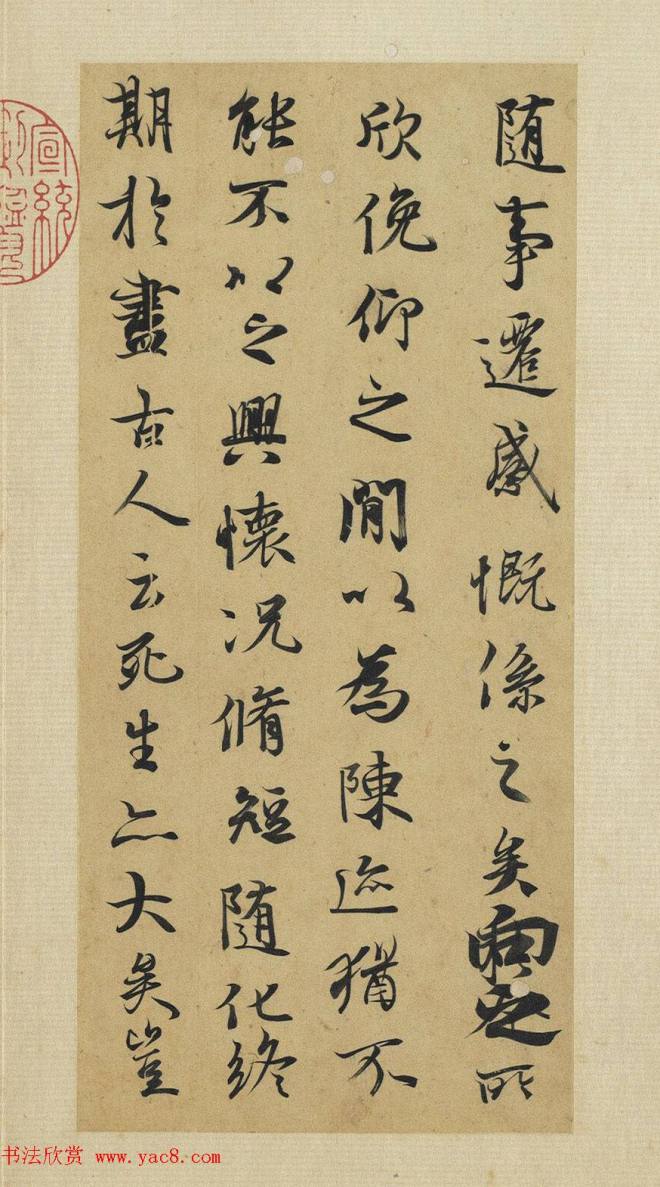 随事遷感慨係之矣向之所
欣俛仰之閒以為陳迹猶不
能不以之興懷况脩短随化終
期於盡古人云死生亦大矣豈
宣統
书法欣赏 www.yac8.com